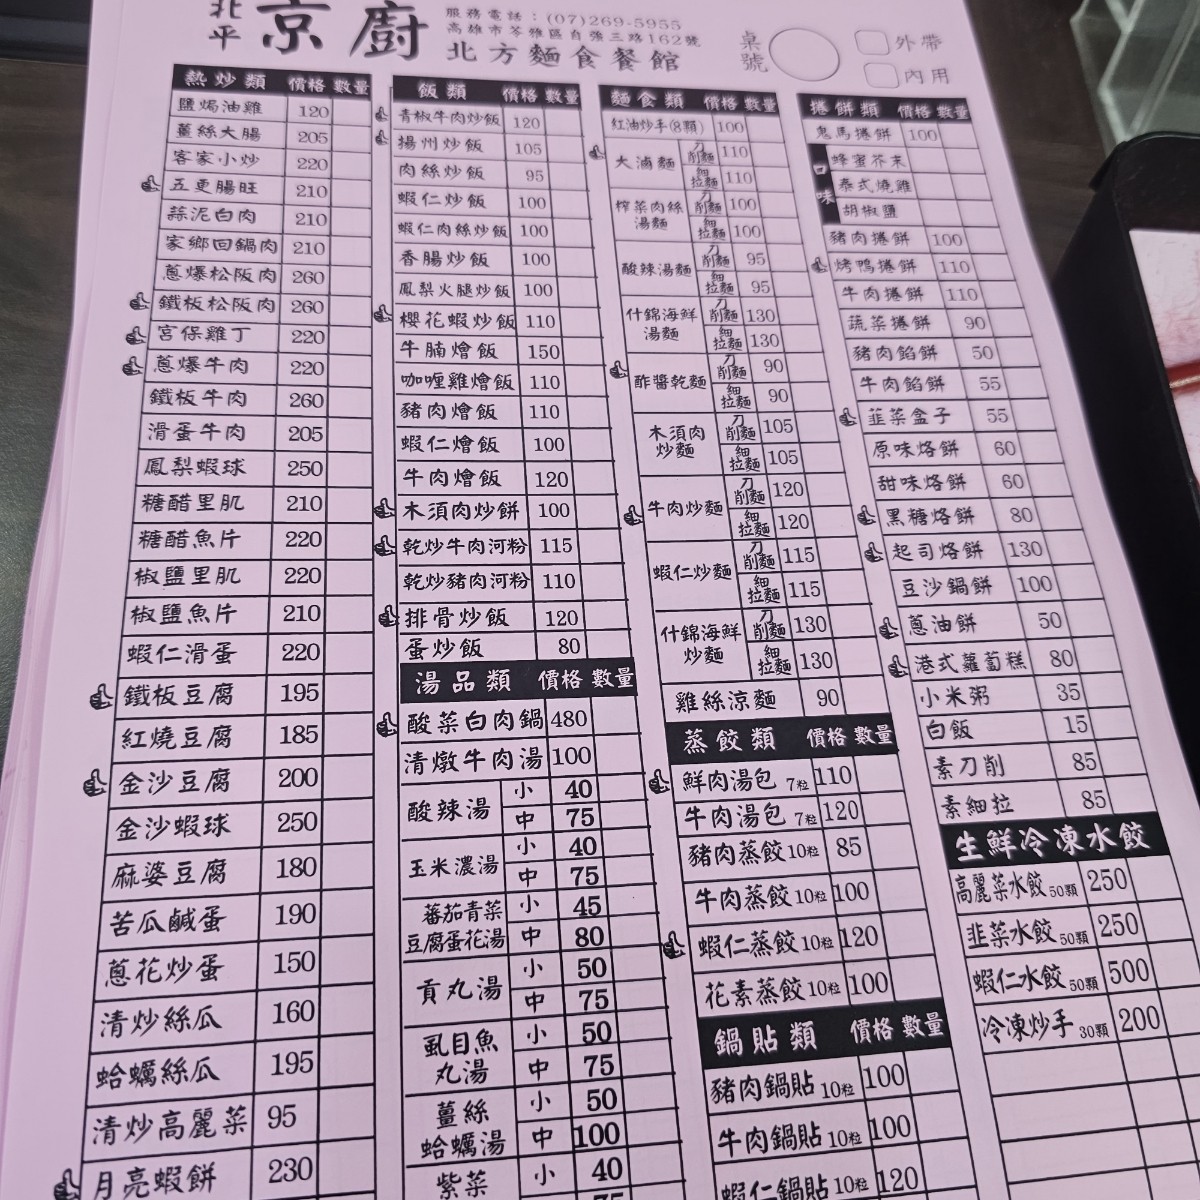 北平 京廚
服務電話：(07)269-5955
高雄市苓雅區自強三路162號
北方麵食餐館
桌號
外帶
內用
熱炒類 價格 數量
鹽焗油雞 120
薑絲大腸 205
客家小炒 220
五更腸旺 210
蒜泥白肉 210
家鄉回鍋肉 210
蔥爆松阪肉 260
鐵板松阪肉 260
宮保雞丁 220
蔥爆牛肉 220
鐵板牛肉 260
滑蛋牛肉 205
鳳梨蝦球 250
糖醋里肌 210
糖醋魚片 220
椒鹽里肌 220
椒鹽魚片 210
蝦仁滑蛋 220
鐵板豆腐 195
紅燒豆腐 185
金沙豆腐 200
金沙蝦球 250
麻婆豆腐 180
苦瓜鹹蛋 190
蔥花炒蛋 150
清炒絲瓜 160
蛤蠣絲瓜 195
清炒高麗菜 95
月亮蝦餅 230
飯類 價格 數量
青椒牛肉炒飯 120
揚州炒飯 105
肉絲炒飯 95
蝦仁炒飯 100
蝦仁肉絲炒飯 100
香腸炒飯 100
鳳梨火腿炒飯 100
櫻花蝦炒飯 110
牛腩燴飯 150
咖哩雞燴飯 110
豬肉燴飯 110
蝦仁燴飯 100
牛肉燴飯 120
木須肉炒餅 100
乾炒牛肉河粉 115
乾炒豬肉河粉 110
排骨炒飯 120
蛋炒飯 80
湯品類 價格 數量
酸菜白肉鍋 480
清燉牛肉湯 100
酸辣湯 小 40
中 75
玉米濃湯 小 40
中 75
蕃茄青菜豆腐蛋花湯 小 45
中 80
貢丸湯 小 50
中 75
虱目魚丸湯 小 50
中 75
薑絲蛤蠣湯 小 50
中 100
紫菜 小 40
75
麵食類 價格 數量
紅油炒手(8顆) 100
大滷麵 刀削麵 110
細拉麵 110
榨菜肉絲湯麵 刀削麵 100
細拉麵 100
酸辣湯麵 刀削麵 95
細拉麵 95
什錦海鮮湯麵 刀削麵 130
細拉麵 130
酢醬乾麵 刀削麵 90
細拉麵 90
木須肉炒麵 刀削麵 105
細拉麵 105
牛肉炒麵 刀削麵 120
細拉麵 120
蝦仁炒麵 刀削麵 115
細拉麵 115
什錦海鮮炒麵 刀削麵 130
細拉麵 130
雞絲涼麵 90
蒸餃類 價格 數量
鮮肉湯包 7粒 110
牛肉湯包 7粒 120
豬肉蒸餃 10粒 85
牛肉蒸餃 10粒 100
蝦仁蒸餃 10粒 120
花素蒸餃 10粒 100
鍋貼類 價格 數量
豬肉鍋貼 10粒 100
牛肉鍋貼 10粒 100
蝦仁鍋貼 10粒 120
捲餅類 價格 數量
鬼馬捲餅 100
口味 蜂蜜芥末
泰式燒雞
胡椒鹽
豬肉捲餅 100
烤鴨捲餅 110
牛肉捲餅 110
蔬菜捲餅 90
豬肉餡餅 50
牛肉餡餅 55
韭菜盒子 55
原味烙餅 60
甜味烙餅 60
黑糖烙餅 80
起司烙餅 130
豆沙鍋餅 100
蔥油餅 50
港式蘿蔔糕 80
小米粥 35
白飯 15
素刀削 85
素細拉 85
生鮮冷凍水餃
高麗菜水餃 50顆 250
韭菜水餃 50顆 250
蝦仁水餃 50顆 500
冷凍炒手 30顆 200